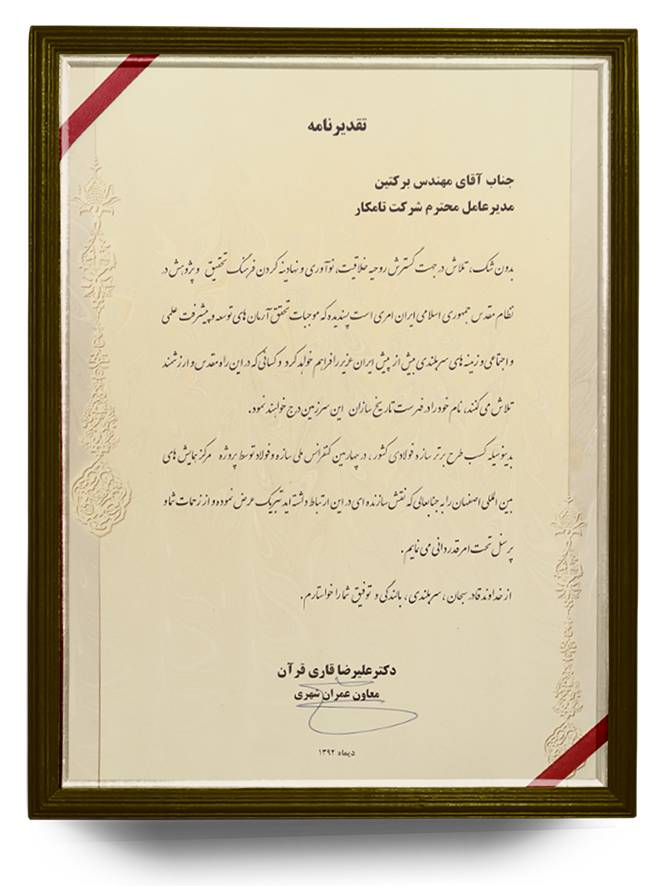 تقدیرنامه
جناب آقای مهندس برکتین
مدیرعامل محترم شرکت تامکار
بدون شک، تلاش در جهت گسترش روحیه خلاقیت، نوآوری و نهادینه کردن فرهنگ تحقیق و پژوهش در
نظام مقدس جمهوری اسلامی ایران امری است پسندیده که موجبات تحقق آرمان های توسعه و پیشرفت علمی
و اجتماعی و زمینه های سربلندی بیش از پیش ایران عزیز را فراهم خواهد کرد و کسانی که در این راه مقدس و ارزشمند
تلاش می کنند، نام خود را در فهرست تاریخ سازان این سرزمین درج خواهند نمود.
بدینوسیله کسب طرح برتر سازه فولادی کشور، در چهارمین کنفرانس ملی سازه و فولاد توسط پروژه مرکز همایش های
بین المللی اصفهان را به جنابعالی که نقش سازنده ای در این ارتباط داشته اید تبریک عرض نموده و از زحمات شما و
پرسنل تحت امر قدردانی می نمایم.
از خداوند قادر سبحان، سربلندی، بالندگی و توفیق شما را خواستارم.
دکتر علیرضا قاری قرآن
معاون عمران شهری
دیماه ۱۳۹۲